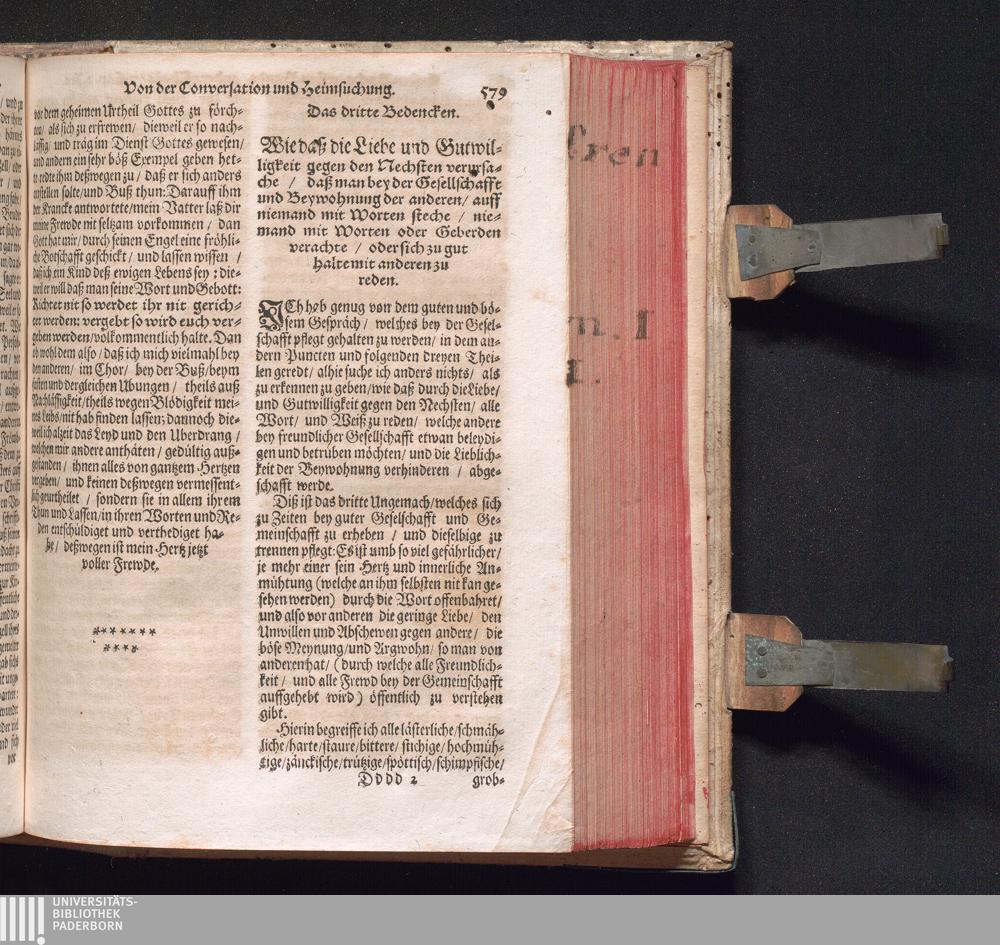 Von der Conversation und Heimsuchung. 579
vor dem geheimen Urtheil Gottes zu förch-
ten/ als sich zu erfrewen/ dieweil er so nach-
lässig/ und träg im Dienst Gottes gewesen/
und andern ein sehr böß Exempel geben het-
te redte ihm deßwegen zu/ daß er sich anders
anstellen solte/und Buß thun: Darauff ihm
der Krancke antwortete/mein Vatter laß dir
meine Frewde nit seltzam vorkommen/ dan
Gott hat mir/ durch seinen Engel eine fröhli-
che Botschafft geschickt/ und lassen wissen/
daß ich ein Kind deß ewigen Lebens sey: die-
weil er will daß man seine Wort und Gebott:
Richtet nit so werdet ihr nit gerich-
tet werden: vergebt so wird euch ver-
geben werden/volkommentlich halte. Dan
ob wohl dem also/ daß ich mich vielmahl bey
den anderen/ im Chor/ bey der Buß/beym
fasten und dergleichen Ubungen/ theils auß
Nachlässigkeit/theils wegen Blödigkeit mei-
nes Leibs/nit hab finden lassen; dannoch die-
weil ich alzeit das Leyd und den Uberdrang/
welchen mir andere anthäten/ gedültig auß-
gestanden/ ihnen alles von gantzem Hertzen
vergeben/ und keinen deßwegen vermessent-
lich geurtheilet/ sondern sie in allem ihrem
Thun und Lassen/in ihren Worten und Re-
den entschüldiget und verthediget ha-
be/ deßwegen ist mein Hertz jetzt
voller Frewde.
*******
****
Das dritte Bedencken.
Wie daß die Liebe und Gutwil-
ligkeit gegen den Nechsten verursa-
che / daß man bey der Gesellschafft
und Beywohnung der anderen/ auff
niemand mit Worten steche / nie-
mand mit Worten oder Geberden
verachte / oder sich zu gut
halte mit anderen zu
reden.
ICh hab genug von dem guten und bö-
sem Gespräch/ welches bey der Gesel-
schafft pflegt gehalten zu werden/ in dem an-
dern Puncten und folgenden dreyen Thei-
len geredt/ alhie suche ich anders nichts/ als
zu erkennen zu geben/wie daß durch die Liebe/
und Gutwilligkeit gegen den Nechsten/ alle
Wort/ und Weiß zu reden/ welche andere
bey freundlicher Gesellschafft etwan beleydi-
gen und betrüben möchten/ und die Lieblich-
keit der Beywohnung verhinderen / abge-
schafft werde.
Diß ist das dritte Ungemach/welches sich
zu Zeiten bey guter Geselschafft und Ge-
meinschafft zu erheben / und dieselbige zu
trennen pflegt: Es ist umb so viel gefährlicher/
je mehr einer sein Hertz und innerliche An-
mühtung (welche an ihm selbsten nit kan ge-
sehen werden) durch die Wort offenbahret/
und also vor anderen die geringe Liebe/ den
Unwillen und Abschewen gegen andere/ die
böse Meynung/und Argwohn/ so man von
anderen hat/ (durch welche alle Freundlich-
keit / und alle Frewd bey der Gemeinschafft
auffgehebt wird) öffentlich zu verstehen
gibt.
Hierin begreiffe ich alle lästerliche/schmäh-
liche/harte/staure/bittere/ stichige/ hochmüh-
tige/zänckische/trützige/spöttisch/schimpfische/
Dddd 2 grob-
UNIVERSITÄTS-
BIBLIOTHEK
PADERBORN